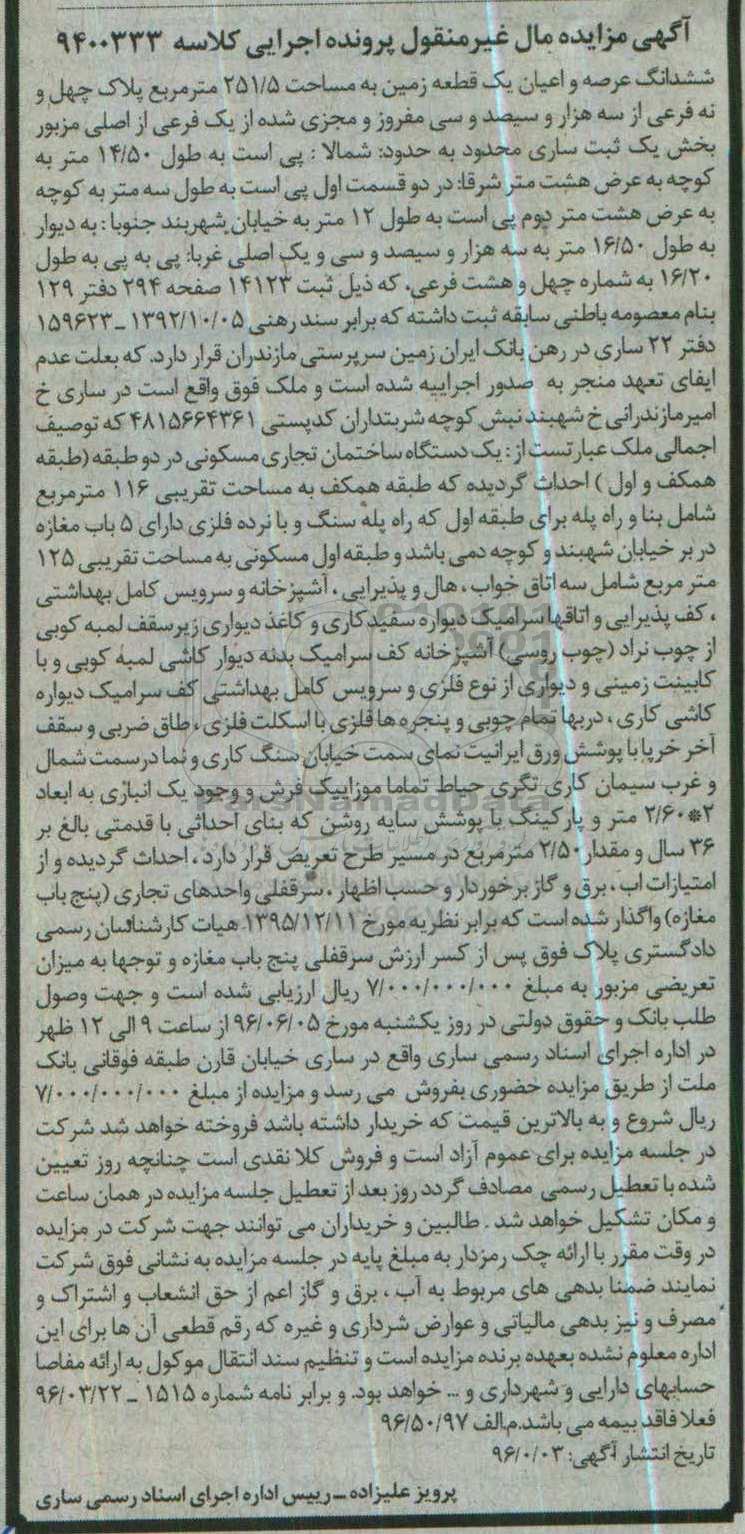 آگهی مزایده مال غیرمنقول پرونده اجرایی کلاسه ۹۴۰۰۳۳۳
ششدانگ عرصه و اعیان یک قطعه زمین به مساحت ۲۵۱/۵ مترمربع پلاک چهل و
نه فرعی از سه هزار و سیصد و سی مفروز و مجزی شده از یک فرعی از اصلی مزبور
بخش یک ثبت ساری محدود به حدود: شمالا : پی است به طول ۱۴/۵۰ متر به
کوچه به عرض هشت متر شرقا: در دو قسمت اول پی است به طول سه متر به کوچه
به عرض هشت متر دوم پی است به طول ۱۲ متر به خیابان شهربند جنوبا : به دیوار
به طول ۱۶/۵۰ متر به سه هزار و سیصد و سی و یک اصلی غربا: پی به پی به طول
۱۶/۲۰ به شماره چهل و هشت فرعی. که ذیل ثبت ۱۴۱۲۳ صفحه ۲۹۴ دفتر ۱۲۹
بنام معصومه باطنی سابقه ثبت داشته که برابر سند رهنی ۱۳۹۲/۱۰/۰۵ ـ ۱۵۹۶۲۳
دفتر ۲۲ ساری در رهن بانک ایران زمین سرپرستی مازندران قرار دارد. که بعلت عدم
ایفای تعهد منجر به صدور اجراییه شده است و ملک فوق واقع است در ساری خ
امیرمازندرانی خ شهبند نبش کوچه شربتداران کدپستی ۴۸۱۵۶۶۴۳۶۱ که توصیف
اجمالی ملک عبارتست از : یک دستگاه ساختمان تجاری مسکونی در دو طبقه (طبقه
همکف و اول ) احداث گردیده که طبقه همکف به مساحت تقریبی ۱۱۶ مترمربع
شامل بنا و راه پله برای طبقه اول که راه پله سنگ و با نرده فلزی دارای ۵ باب مغازه
در بر خیابان شهبند و کوچه دمی باشد و طبقه اول مسکونی به مساحت تقریبی ۱۲۵
متر مربع شامل سه اتاق خواب ، هال و پذیرایی ، آشپزخانه و سرویس کامل بهداشتی
، کف پذیرایی و اتاقها سرامیک دیواره سفیدکاری و کاغذ دیواری زیرسقف لمبه کوبی
از چوب نراد (چوب روسی) آشپزخانه کف سرامیک بدنه دیوار کاشی لمبه کوبی و با
کابینت زمینی و دیواری از نوع فلزی و سرویس کامل بهداشتی کف سرامیک دیواره
کاشی کاری ، دربها تمام چوبی و پنجره ها فلزی با اسکلت فلزی ، طاق ضربی و سقف
آخر خرپا با پوشش ورق ایرانیت نمای سمت خیابان سنگ کاری و نما درسمت شمال
و غرب سیمان کاری تگری حیاط تماما موزاییک فرش و وجود یک انباری به ابعاد
۲*۲/۶۰ متر و پارکینگ با پوشش سایه روشن که بنای احداثی با قدمتی بالغ بر
۳۶ سال و مقدار ۲/۵۰ مترمربع در مسیر طرح تعریض قرار دارد ، احداث گردیده و از
امتیازات اب ، برق و گاز برخوردار و حسب اظهار ، سرقفلی واحدهای تجاری (پنج باب
مغازه) واگذار شده است که برابر نظریه مورخ ۱۳۹۵/۱۲/۱۱ هیات کارشناسان رسمی
دادگستری پلاک فوق پس از کسر ارزش سرقفلی پنج باب مغازه و توجها به میزان
تعریضی مزبور به مبلغ ۷/۰۰۰/۰۰۰/۰۰۰ ریال ارزیابی شده است و جهت وصول
طلب بانک و حقوق دولتی در روز یکشنبه مورخ ۹۶/۰۶/۰۵ از ساعت ۹ الی ۱۲ ظهر
در اداره اجرای اسناد رسمی ساری واقع در ساری خیابان قارن طبقه فوقانی بانک
ملت از طریق مزایده حضوری بفروش می رسد و مزایده از مبلغ ۷/۰۰۰/۰۰۰/۰۰۰
ریال شروع و به بالاترین قیمت که خریدار داشته باشد فروخته خواهد شد شرکت
در جلسه مزایده برای عموم آزاد است و فروش کلا نقدی است چنانچه روز تعیین
شده با تعطیل رسمی مصادف گردد روز بعد از تعطیل جلسه مزایده در همان ساعت
و مکان تشکیل خواهد شد . طالبین و خریداران می توانند جهت شرکت در مزایده
در وقت مقرر با ارائه چک رمزدار به مبلغ پایه در جلسه مزایده به نشانی فوق شرکت
نمایند ضمنا بدهی های مربوط به آب ، برق و گاز اعم از حق انشعاب و اشتراک و
مصرف و نیز بدهی مالیاتی و عوارض شرداری و غیره که رقم قطعی آن ها برای این
اداره معلوم نشده بعهده برنده مزایده است و تنظیم سند انتقال موکول به ارائه مفاصا
حسابهای دارایی و شهرداری و ... خواهد بود. و برابر نامه شماره ۱۵۱۵ ـ ۹۶/۰۳/۲۲
فعلا فاقد بیمه می باشد.م.الف ۹۶/۵۰/۹۷
تاریخ انتشار آگهی: ۹۶/۰/۰۳
پرویز علیزاده ــ رییس اداره اجرای اسناد رسمی ساری
ParsNamadData